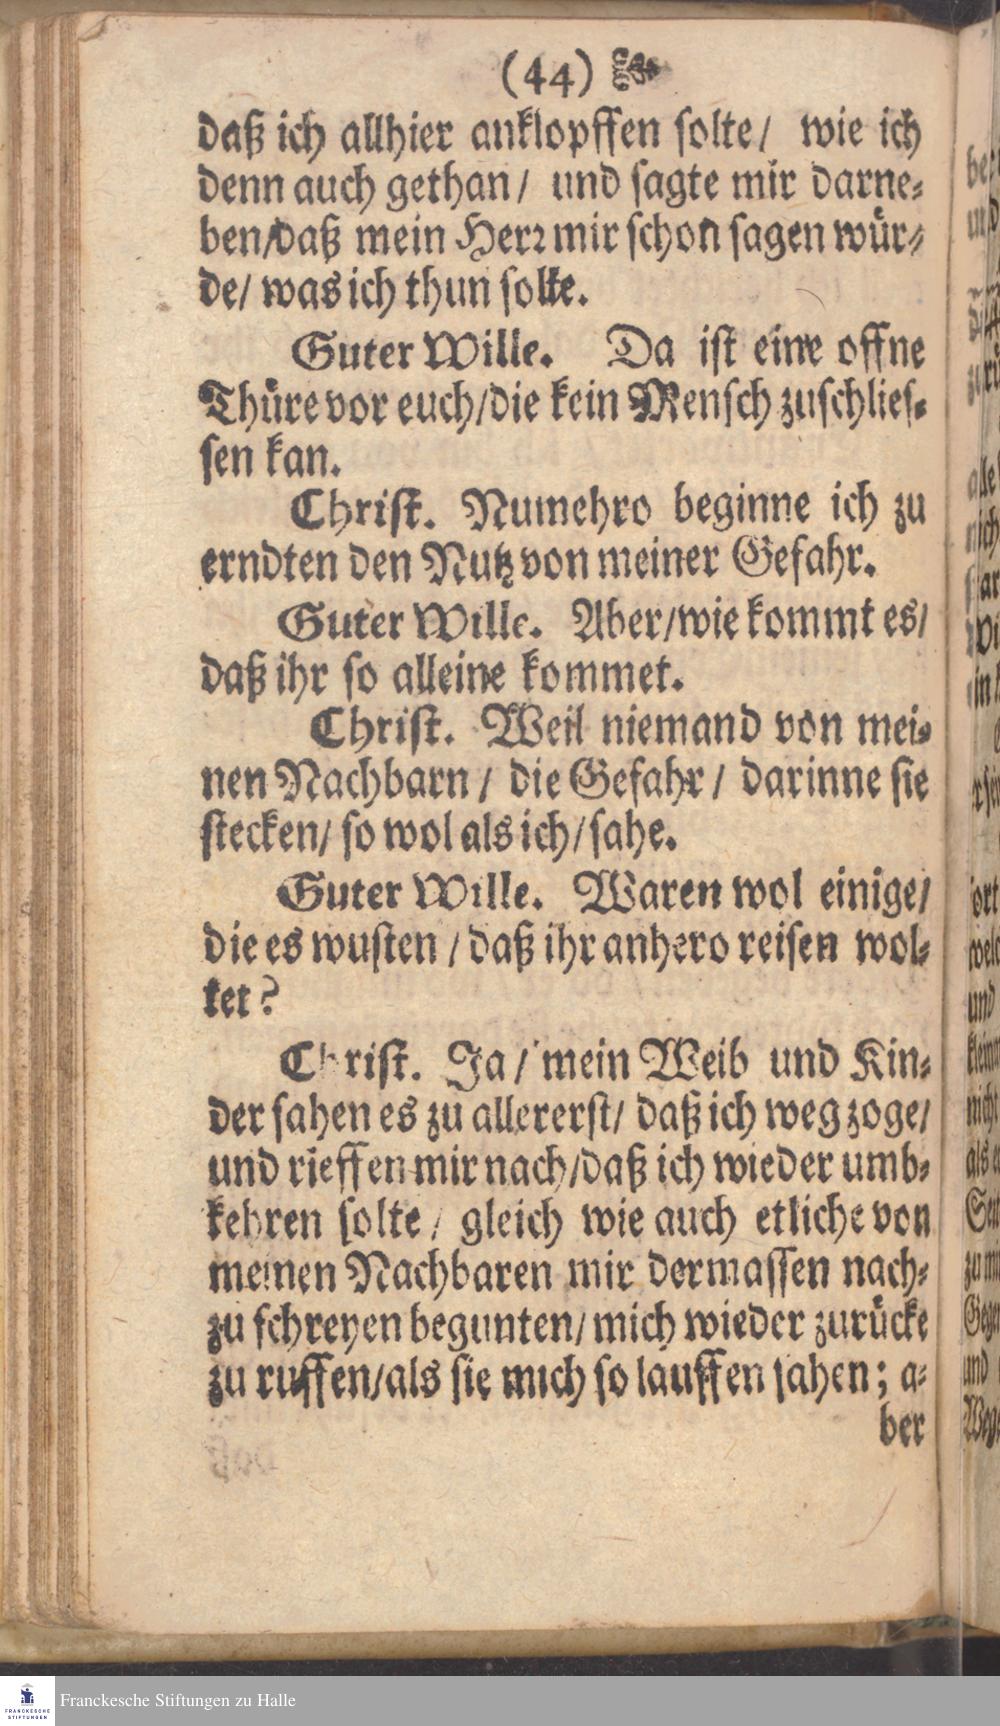 (44)
daß ich allhier anklopffen solte/ wie ich
denn auch gethan/ und sagte mir darne⸗
ben/daß mein Herr mir schon sagen wür⸗
de/ was ich thun solte.
Guter Wille. Da ist eine offne
Thüre vor euch/die kein Mensch zuschlies⸗
sen kan.
Christ. Numehro beginne ich zu
erndten den Nutz von meiner Gefahr.
Guter Wille. Aber/wie kommt es/
daß ihr so alleine kommet.
Christ. Weil niemand von mei⸗
nen Nachbarn / die Gefahr / darinne sie
stecken/ so wol als ich/sahe.
Guter Wille. Waren wol einige/
die es wusten / daß ihr anhero reisen wol⸗
tet?
Christ. Ja/ mein Weib und Kin⸗
der sahen es zu allererst/ daß ich weg zoge/
und rieffen mir nach/daß ich wieder umb⸗
kehren solte/ gleich wie auch etliche von
meinen Nachbaren mir dermassen nach⸗
zu schreyen begunten/ mich wieder zurücke
zu ruffen/als sie mich so lauffen sahen; a⸗
ber
FRANCKESCHE
STIFTUNGEN
Franckesche Stiftungen zu Halle